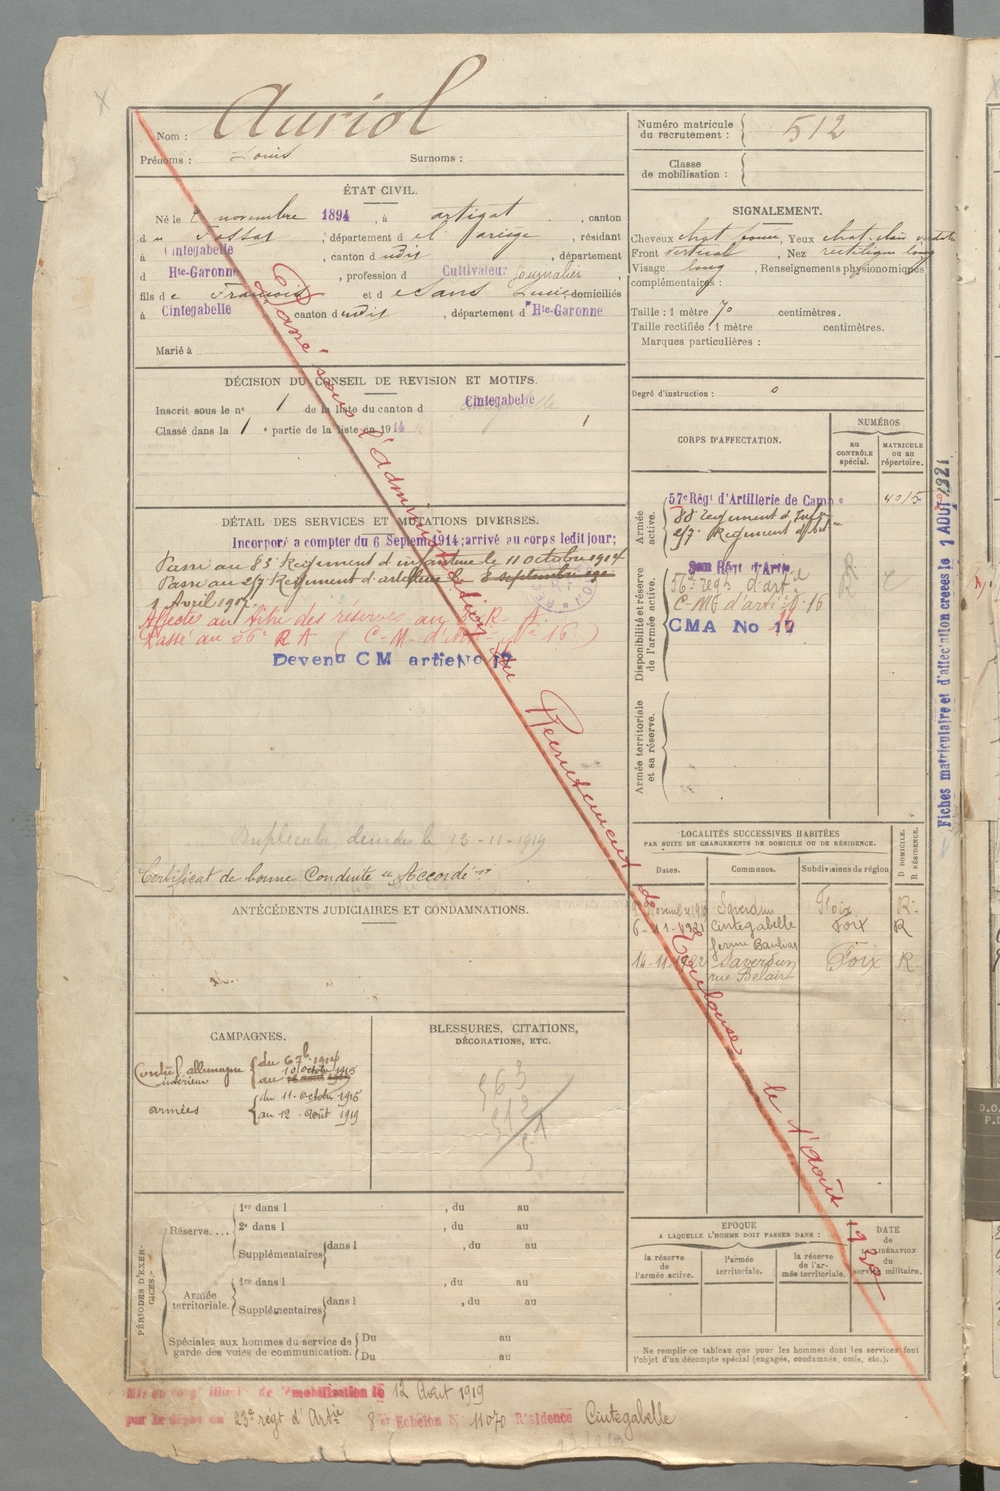 Nom : Auriol
Prénoms : Louis Surnoms :
Numéro matricule du recrutement : 512
Classe de mobilisation :
ÉTAT CIVIL.
Né le 2 novembre 1894, à Artigat, canton
du Fossat, département de l'Ariège, résidant
à Cintegabelle, canton dudit, département
d Hte-Garonne, profession d Cultivateur Journalier,
fils de François et de Sans Lucie domiciliés
à Cintegabelle canton dudit, département d Hte-Garonne
Marié à
SIGNALEMENT.
Cheveux chat. foncé, Yeux chat. clair
Front vertical, Nez rectiligne long
Visage long, Renseignements physionomiques
complémentaires :
Taille : 1 mètre 70 centimètres.
Taille rectifiée 1 mètre centimètres.
Marques particulières :
Degré d'instruction : 0
DÉCISION DU CONSEIL DE REVISION ET MOTIFS.
Inscrit sous le n° 1 de la liste du canton d Cintegabelle
Classé dans la 1e partie de la liste en 1914 1
DÉTAIL DES SERVICES ET MUTATIONS DIVERSES.
Incorporé a compter du 6 Septem 1914; arrivé au corps ledit jour;
Passé au 83e Régiment d'infanterie le 11 octobre 1914
Passé au 27 Régiment d'artillerie le 8 septembre
1 Avril 1917.
Affecté au titre des réserves au R.
Passé au 56e R A (C-M- d'Artie No 16)
Devenu CM artie No 1
Duplicata le 13-11-1919
Certificat de bonne Conduite "Accordé"
CORPS D'AFFECTATION.
NUMÉROS
AU CONTRÔLE spécial.
MATRICULE OU AU répertoire.
Armée active.
57e Régt d'Artillerie de Camp e 4015
88 Regiment d'Infie
27 Regiment d'Art
Disponibilité et réserve de l'armée active.
Régt d'Artie
56e régt d'artie
C-M d'artie N° 16
CMA No 1
Armée territoriale et sa réserve.
Fiches matriculaire et d'affectation créées le 1 AOUT 1921
Passé sous l'administration du Recrutement de Toulouse le 1er Août 1930
ANTÉCÉDENTS JUDICIAIRES ET CONDAMNATIONS.
LOCALITÉS SUCCESSIVES HABITÉES
PAR SUITE DE CHANGEMENTS DE DOMICILE OU DE RÉSIDENCE.
Dates. Communes. Subdivisions de région D DOMICILE. R RÉSIDENCE.
Novembre Saverdun Foix R.
6-11-1921 Cintegabelle Foix R
ferme
14-11-1922 Saverdun Foix R
rue Belair
CAMPAGNES.
Contre l'allemagne
intérieur du 6 7bre 1914
au 10 octobre 1915
armées du 11 octobre 1915
au 12 Août 1919
BLESSURES, CITATIONS,
DÉCORATIONS, ETC.
563
512
51
PÉRIODES D'EXERCICES.
Réserve.... 1re dans l , du au
2e dans l , du au
Supplémentaires dans l , du au
Armée territoriale. 1re dans l , du au
Supplémentaires dans l , du au
Spéciales aux hommes du service de garde des voies de communication. Du au
Du au
EPOQUE
A LAQUELLE L'HOMME DOIT PASSER DANS :
la réserve de l'armée active.
l'armée territoriale.
la réserve de l'armée territoriale.
DATE de LIBÉRATION du service militaire.
Ne remplir ce tableau que pour les hommes dont les services font
l'objet d'un décompte spécial (engagés, condamnés, omis, etc.).
Mis en congé illimité de démobilisation le 12 Août 1919
par le dépôt du 23e régt d'Artie 8e Echelon N° 11070 Résidence Cintegabelle